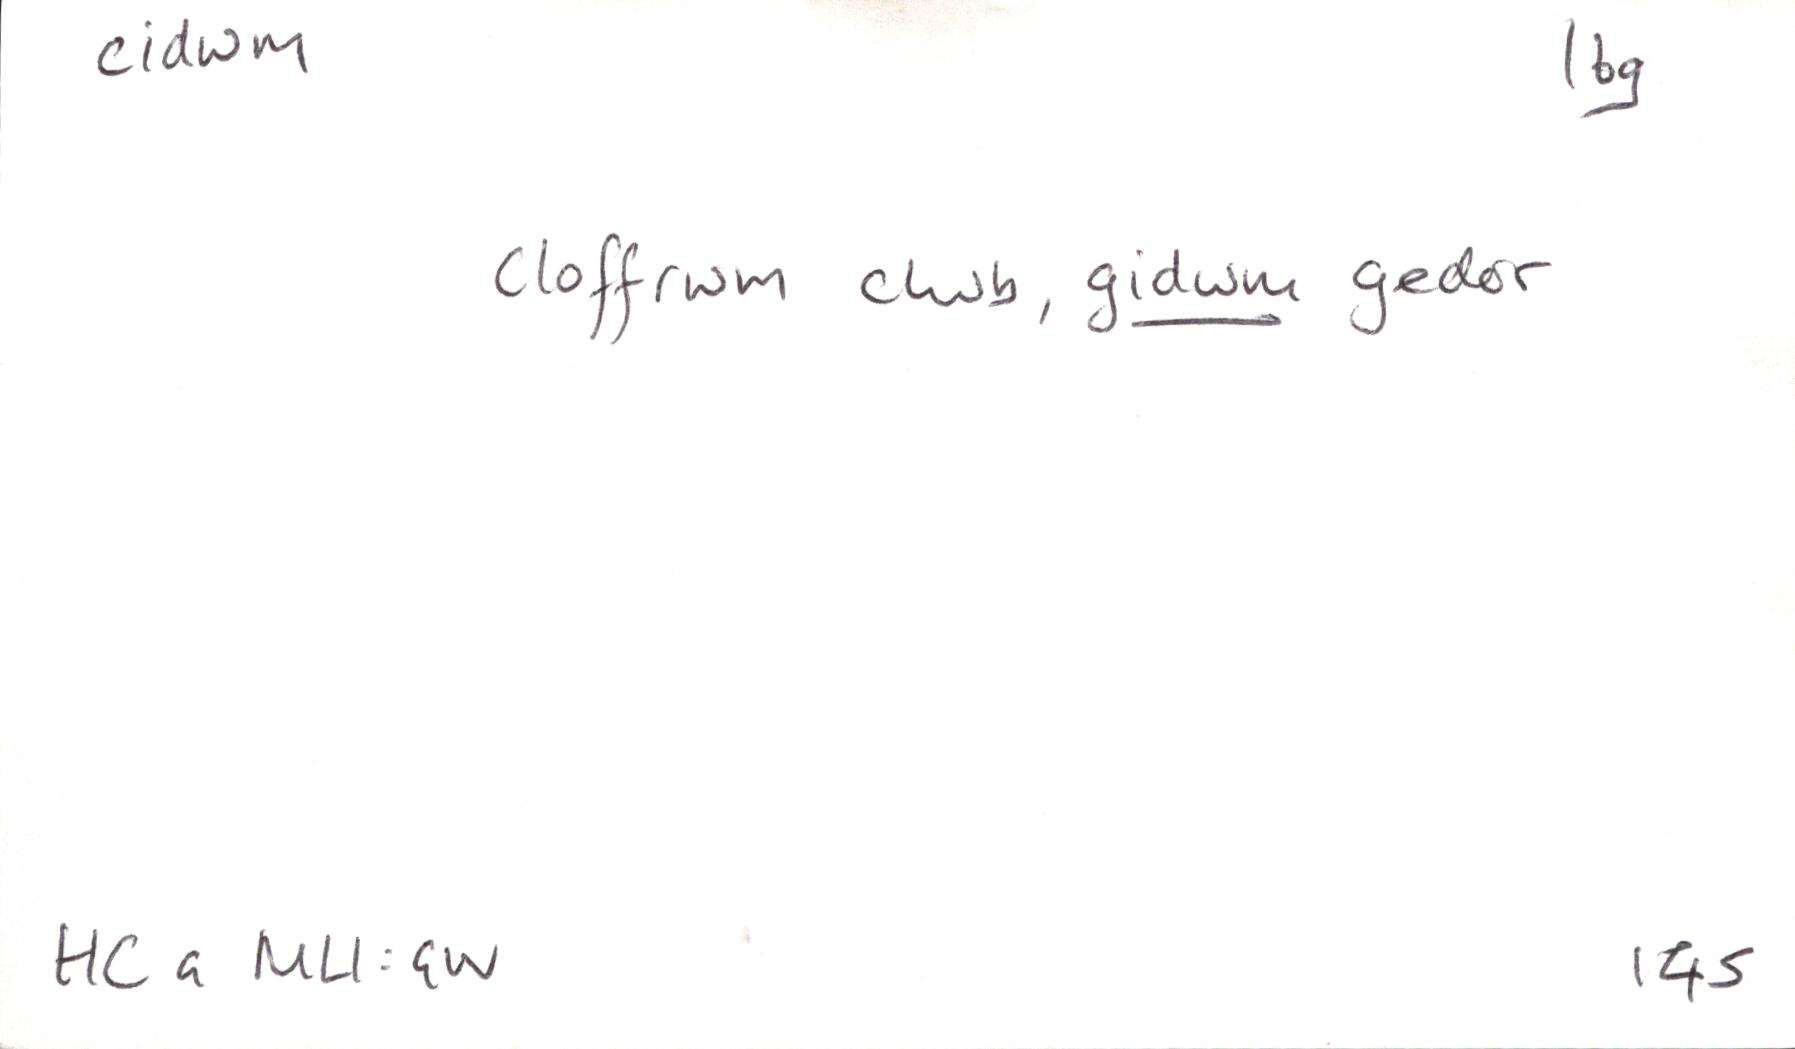 cidwm
16g
Cloffrwm chwb, gidwm gedor
HC a MLl: GW
145